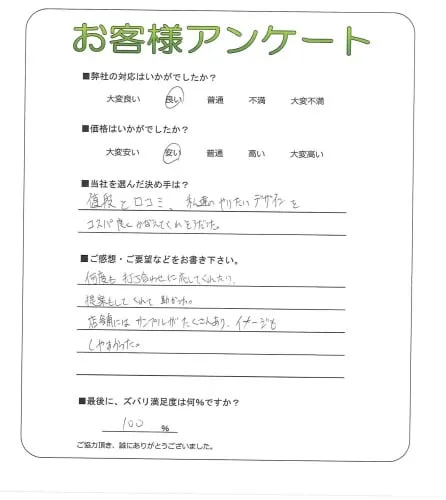 お客様アンケート
■弊社の対応はいかがでしたか?
大変良い 良い 普通 不満 大変不満
■価格はいかがでしたか?
大変安い 安い 普通 高い 大変高い
■当社を選んだ決め手は?
値段と口コミ、私達のやりたいデザインを
コスパ良くかなえてくれそうだった。
■ご感想・ご要望などをお書き下さい。
何度も打ち合わせに応してくれたり、
提案もしてくれて助かった。
店舗にはサンプルがたくさんあり、イメージも
しやすかった。
■最後に、ズバリ満足度は何%ですか?
100 %
ご協力頂き、誠にありがとうございました。